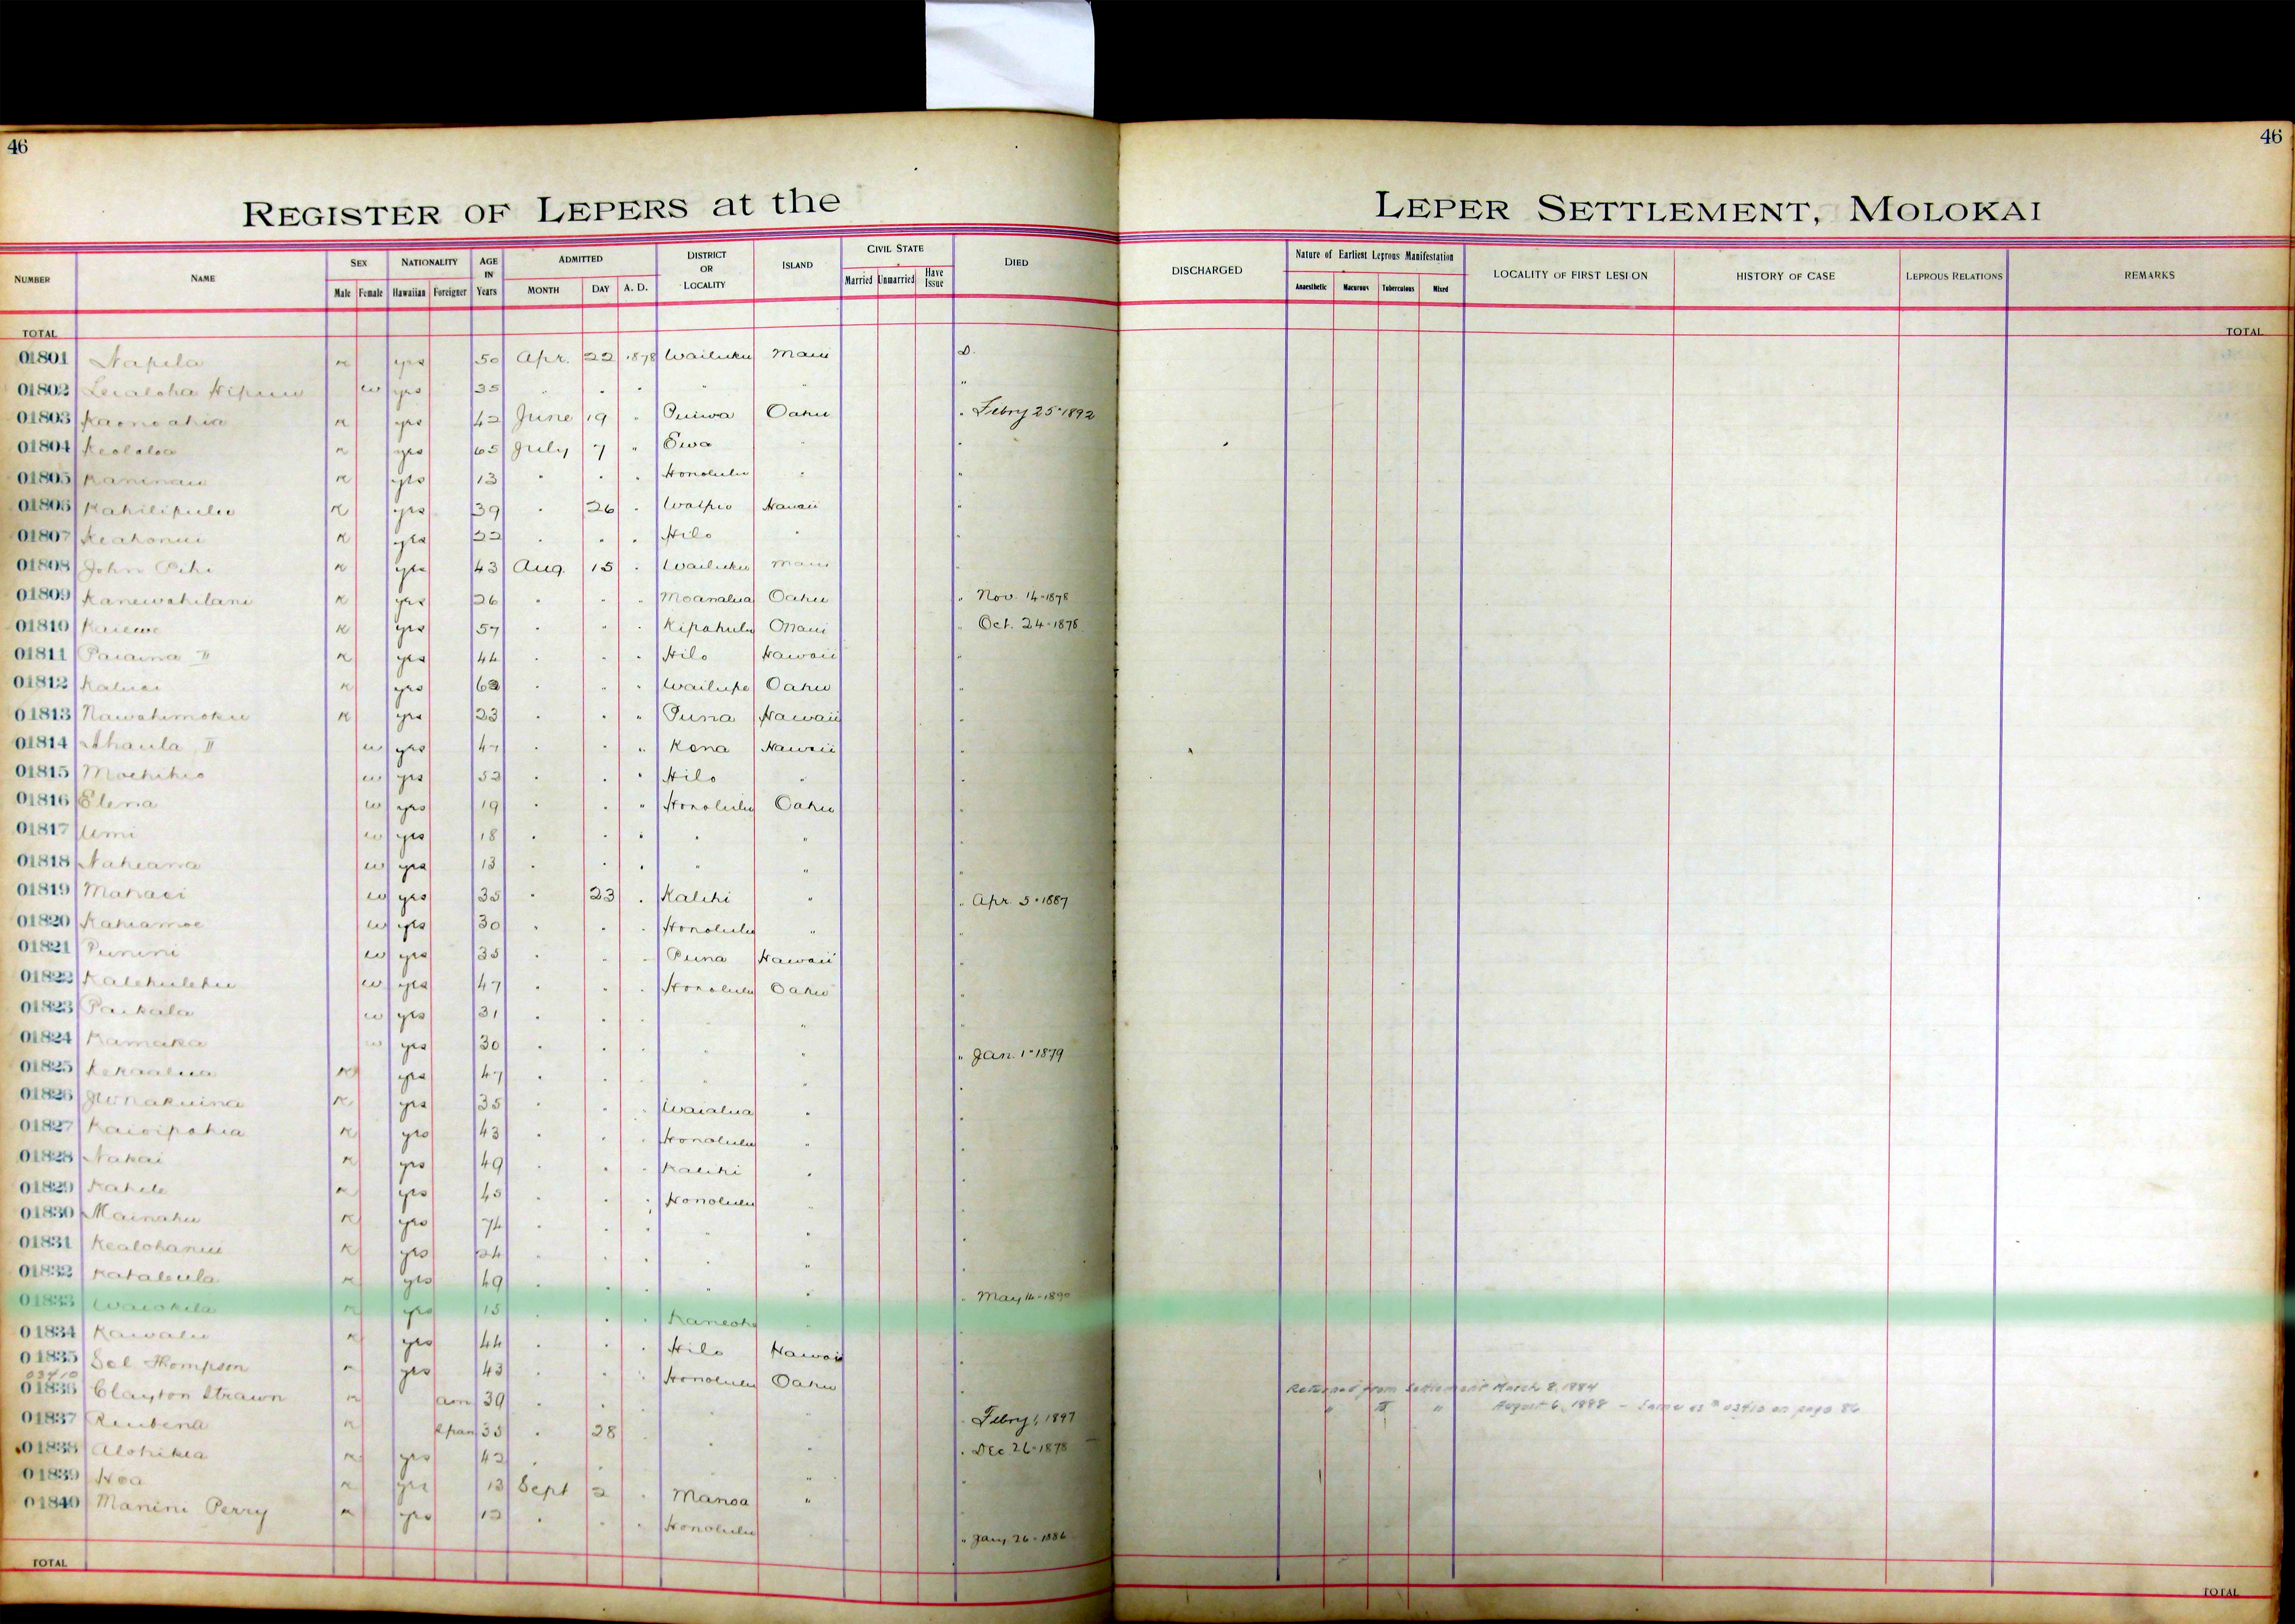 46
46
REGISTER OF LEPERS at the LEPER SETTLEMENT, MOLOKAI
NUMBER NAME SEX Male Female NATIONALITY Hawaiian Foreigner AGE IN Years ADMITTED MONTH DAY A. D. DISTRICT OR LOCALITY ISLAND CIVIL STATE Married Unmarried Have Issue DIED DISCHARGED Nature of Earliest Leprous Manifestation Anaesthetic Macurous Tuberculous Mixed LOCALITY OF FIRST LESION HISTORY OF CASE LEPROUS RELATIONS REMARKS
TOTAL TOTAL
01801 Napela m yes 50 Apr. 22 1878 Wailuku Maui D.
01802 Lealoha w yes 35 " " " " " "
01803 Kaonoahia m yes 42 June 19 " Puiwa Oahu " Febry 25-1892
01804 Keololoa m yes 65 July 7 " Ewa " "
01805 Kaninau m yes 13 " " " Honolulu " "
01806 Kahilipulu m yes 39 " 26 " Waipio Hawaii "
01807 Keahonui m yes 22 " " " Hilo " "
01808 John m yes 43 Aug. 15 " Wailuku Maui "
01809 Kanewahilani m yes 26 " " " Moanalua Oahu " Nov. 14-1878
01810 Kaiewe m yes 57 " " " Kipahulu Maui " Oct. 24-1878
01811 Paiaina II m yes 44 " " " Hilo Hawaii "
01812 Kaluai m yes " " " Wailupe Oahu "
01813 Nawahimoku m yes 23 " " " Puna Hawaii "
01814 Ahaula II w yes 47 " " " Kona Hawaii "
01815 w yes 52 " " " Hilo " "
01816 Elena w yes 19 " " " Honolulu Oahu "
01817 Umi w yes 18 " " " " " "
01818 Naheana w yes 13 " " " " " "
01819 Mahaei w yes 35 " 23 " Kalihi " " Apr. 5-1887
01820 Kahiamoe w yes 30 " " " Honolulu " "
01821 Punini w yes 35 " " " Puna Hawaii "
01822 Kalehulehu w yes 47 " " " Honolulu Oahu "
01823 Paikala w yes 31 " " " " "
01824 Kamaka w yes 30 " " " " " " Jan. 1-1879
01825 Kekaalua m yes 47 " " " " " "
01826 m yes 35 " " " Waialua " "
01827 Kaioipahia m yes 43 " " " Honolulu " "
01828 Nakai m yes 49 " " " Kalihi " "
01829 Kahele m yes 45 " " " Honolulu " "
01830 Mainahu m yes 74 " " " " "
01831 Kealohanui m yes 24 " " " " "
01832 Kahalaula m yes 49 " " " " " " May 14-1890
01833 Waiokila m yes 15 " " " Kaneohe "
01834 Kawalu m yes 44 " " " Hilo Hawaii "
01835 Sol Thompson m yes 43 " " " Honolulu Oahu "
03410
01836 Clayton Strawn m am 39 " " " " Febry 1, 1897 Returned from Settlement March 8, 1884
" " " August 6, 1888 - Same as # 03410 on page 86
01837 Reubena m Span 35 " 28 " " " Dec 26-1878
01838 Alohikea m yes 42 " " "
01839 Hoa m yes 13 Sept 2 " Manoa "
01840 Manini Perry m yes 12 " " " Honolulu " Jany 26-1886
TOTAL TOTAL